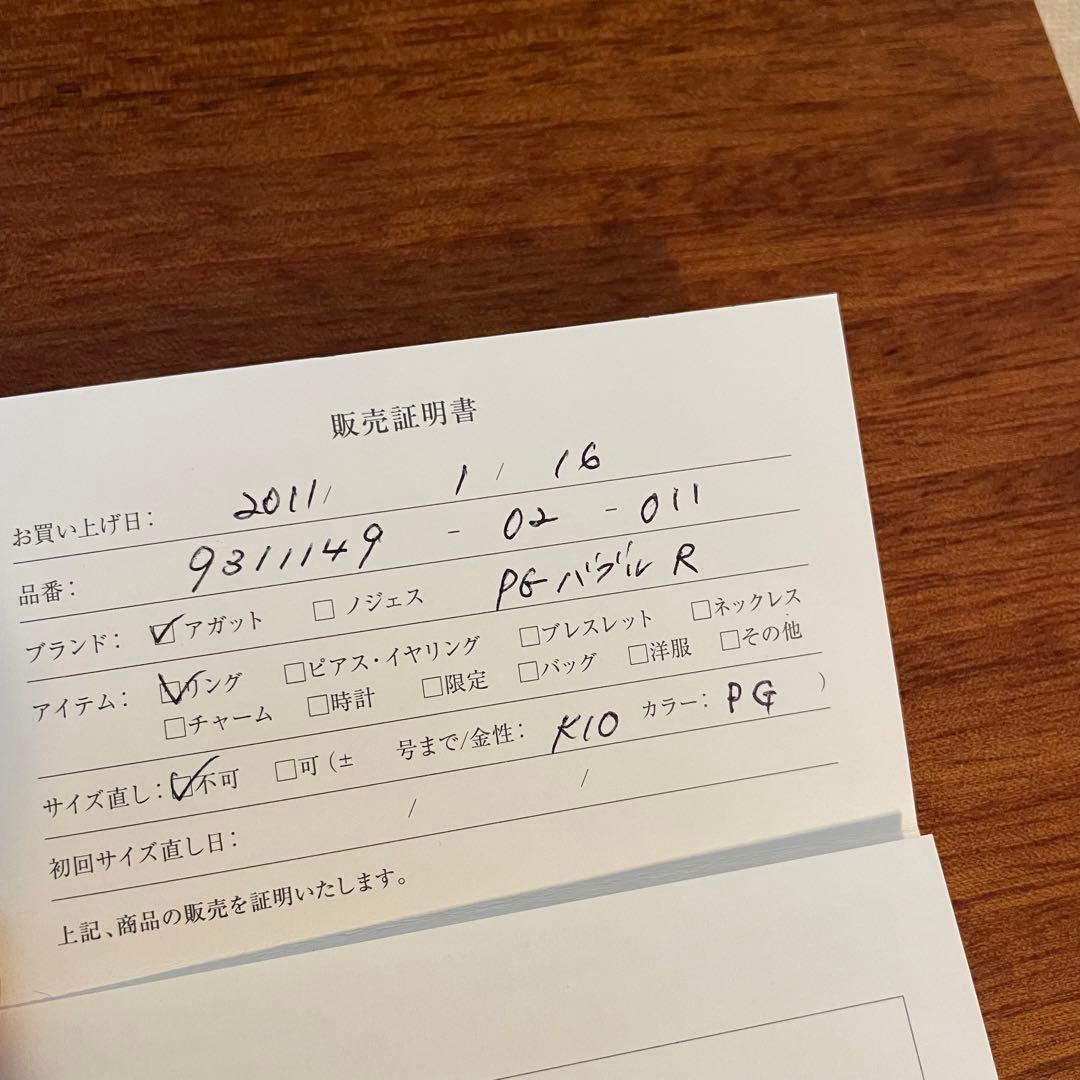 販売証明書
お買い上げ日： 2011/ 1 / 16
品番： 9311149 - 02 - 011
ブランド： ☑アガット □ノジェス PG バブル R
アイテム： ☑リング □ピアス・イヤリング □ブレスレット □ネックレス
□チャーム □時計 □限定 □バッグ □洋服 □その他
サイズ直し： ☑不可 □可 (± 号まで/金性： K10 カラー： PG )
初回サイズ直し日： / /
上記、商品の販売を証明いたします。